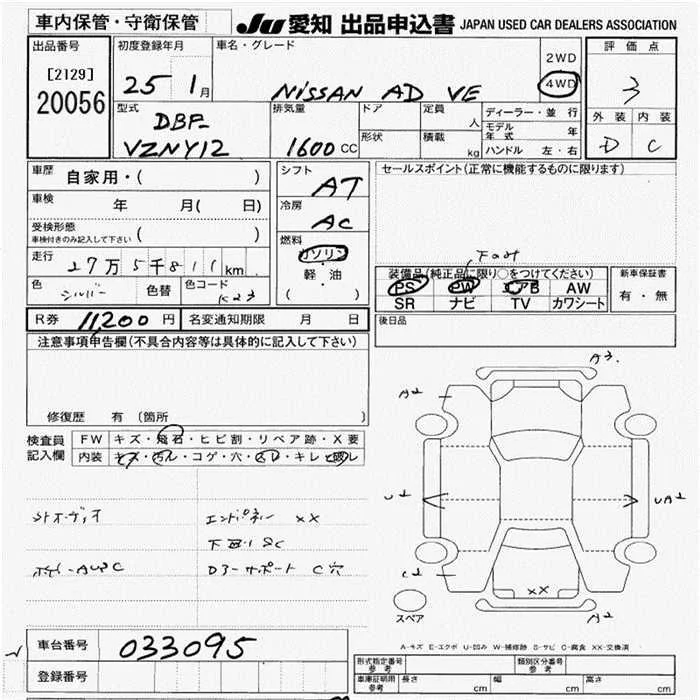 車内保管・守衛保管
JU 愛知 出品申込書 JAPAN USED CAR DEALERS ASSOCIATION
出品番号
[2129]
20056
初度登録年月
25 1月
車名・グレード
NISSAN AD VE
2WD
4WD
評価点
3
外装 内装
D C
型式
DBF-
VZNY12
排気量
1600 CC
ドア
定員
人
形状
積載
kg
ディーラー・並行
モデル年式 年
ハンドル 左・右
車歴 自家用・( )
車検 年 月( 日)
受検形態
車検付きのみ記入して下さい ( )
走行 27万5千811km
色 シルバー 色替 色コード K23
シフト AT
冷房 AC
燃料
ガソリン
・
軽・油
( )
セールスポイント(正常に機能するものに限ります)
下のみ
装備品(純正品に限り○をつけてください)
PS PW エアB AW
SR ナビ TV カワシート
新車保証書
有・無
R券 11,200円 名変通知期限 月 日
後日品
注意事項申告欄(不具合内容等は具体的に記入して下さい)
修復歴 有(箇所 )
検査員
記入欄
FW キズ・飛石・ヒビ割・リペア跡・X要
内装 キズ・汚レ・コゲ・穴・・キレ・破レ
エンドパネル XX
下廻り SC
ボデーAUSC
コアサポート C穴
A3
A2
U2
UA2
C2
XX
A2
スペア
A-キズ E-エクボ U-凹み W-補修跡 S-サビ C-腐食 XX-交換済
車台番号 033095
登録番号
形式指定番号
参考
類別区分番号
参考
車庫証明用
参考
長さ cm 幅 cm 高さ cm